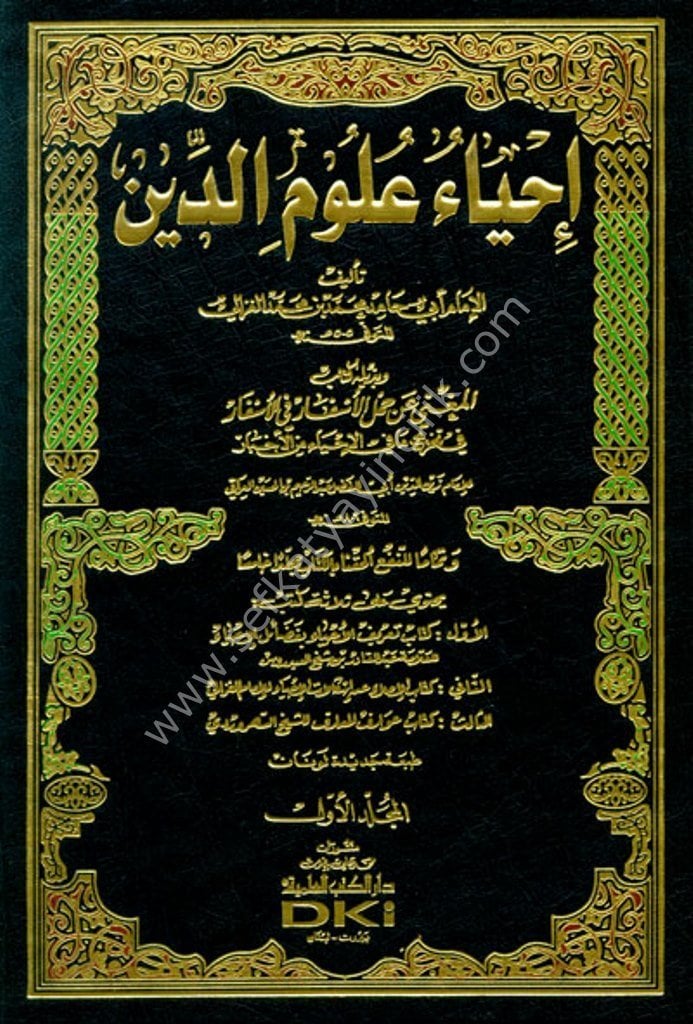 إِحْيَاءُ عُلُومِ الدِّين
تأليف
الإمام أبي حامد محمد بن محمد الغزالي
المتوفى ٥٠٥ هـ
وبذيله كتاب
المغني عن حمل الأسفار في الأسفار
في تخريج ما في الإحياء من الأخبار
للإمام زين الدين أبي الفضل عبد الرحيم بن الحسين العراقي
المتوفى هـ
وتماماً للنفع ألحقنا بالكتاب جزءاً خامساً
يحتوي على ثلاثة كتب:
الأول: كتاب تعريف الأحياء بفضائل الإحياء
للعلامة عبد القادر بن شيخ العيدروس
الثاني: كتاب الإملاء عن إشكالات الإحياء للإمام الغزالي
الثالث: كتاب عوارف المعارف للشيخ السهروردي
طبعة جديدة
المجلد الأول
منشورات
محمد علي بيضون
دار الكتب العلمية
DKi
بيروت - لبنان
www.sefkatyayincilik.com